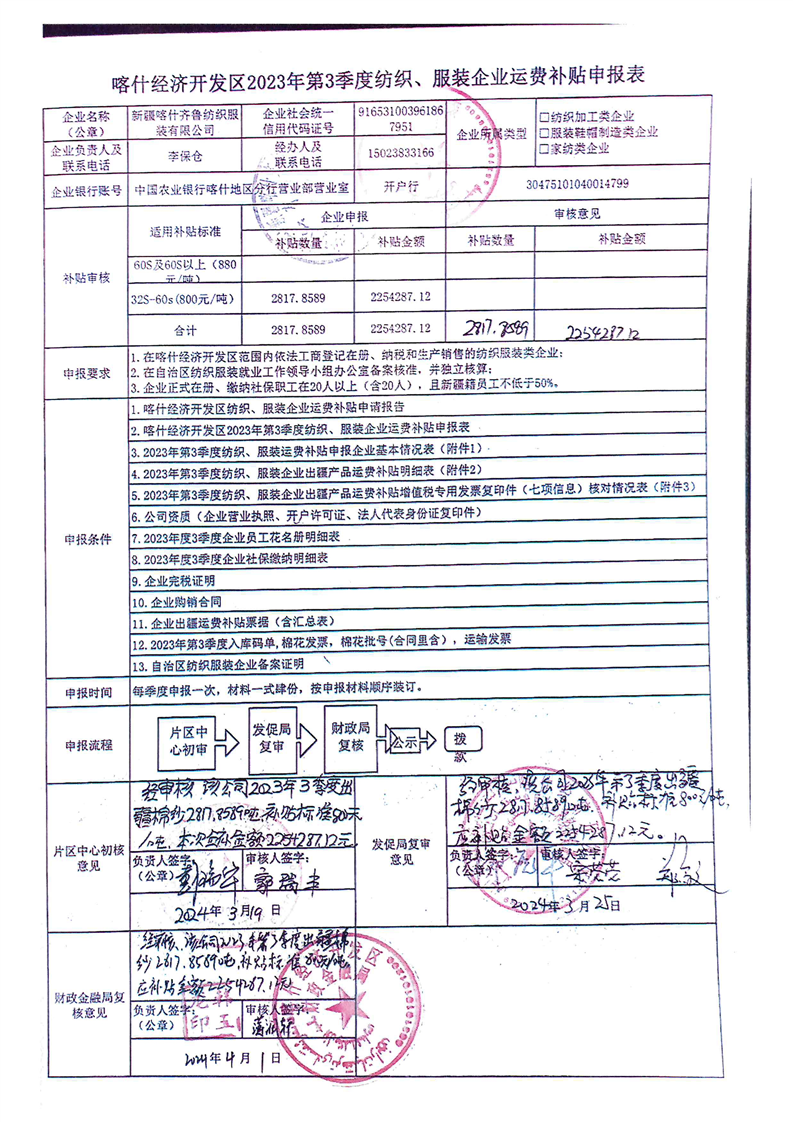 喀什经济开发区2023年第3季度纺织、服装企业运费补贴申报表
企业名称
（公章）
新疆喀什齐鲁纺织服
装有限公司
企业社会统一
信用代码证号
91653100396186
7951
企业所属类型
□纺织加工类企业
□服装鞋帽制造类企业
□家纺类企业
企业负责人及
联系电话
李保仓
经办人及
联系电话
15023833166
企业银行账号
中国农业银行喀什地区分行营业部营业室
开户行
30475101040014799
补贴审核
适用补贴标准
企业申报
审核意见
补贴数量
补贴金额
补贴数量
补贴金额
60S及60S以上（880
元/吨）
32S-60s(800元/吨）
2817.8589
2254287.12
合计
2817.8589
2254287.12
2817.8589
2254287.12
申报要求
1.在喀什经济开发区范围内依法工商登记在册、纳税和生产销售的纺织服装类企业；
2.在自治区纺织服装就业工作领导小组办公室备案核准，并独立核算；
3.企业正式在册、缴纳社保职工在20人以上（含20人），且新疆籍员工不低于50%。
申报条件
1.喀什经济开发区纺织、服装企业运费补贴申请报告
2.喀什经济开发区2023年第3季度纺织、服装企业运费补贴申报表
3.2023年第3季度纺织、服装运费补贴申报企业基本情况表（附件1）
4.2023年第3季度纺织、服装企业出疆产品运费补贴明细表（附件2）
5.2023年第3季度纺织、服装企业出疆产品运费补贴增值税专用发票复印件（七项信息）核对情况表（附件3）
6.公司资质（企业营业执照、开户许可证、法人代表身份证复印件）
7.2023年度3季度企业员工花名册明细表
8.2023年度3季度企业社保缴纳明细表
9.企业完税证明
10.企业购销合同
11.企业出疆运费补贴票据（含汇总表）
12.2023年第3季度入库码单,棉花发票，棉花批号(合同里含），运输发票
13.自治区纺织服装企业备案证明
申报时间
每季度申报一次，材料一式肆份，按申报材料顺序装订。
申报流程
片区中
心初审
发促局
复审
财政局
复核
公示
拨
款
片区中心初核
意见
经审核，该公司2023年3季度出
疆棉纱2817.8589吨，补贴标准800元
/吨，本次应补金额2254287.12元
负责人签字：
（公章）
审核人签字：
郭瑞丰
2024年3月19日
发促局复审
意见
经审核，该公司2023年第3季度出疆
棉纱2817.8589吨，补贴标准800元/吨，
应补贴金额2254287.12元。
负责人签字：
（公章）
审核人签字：
2024年3月25日
财政金融局复
核意见
经审核，该公司2023年第3季度出疆棉
纱2817.8589吨，补贴标准800元/吨，
应补贴金额2254287.12元
负责人签字：
（公章）
审核人签字：
2024年4月1日